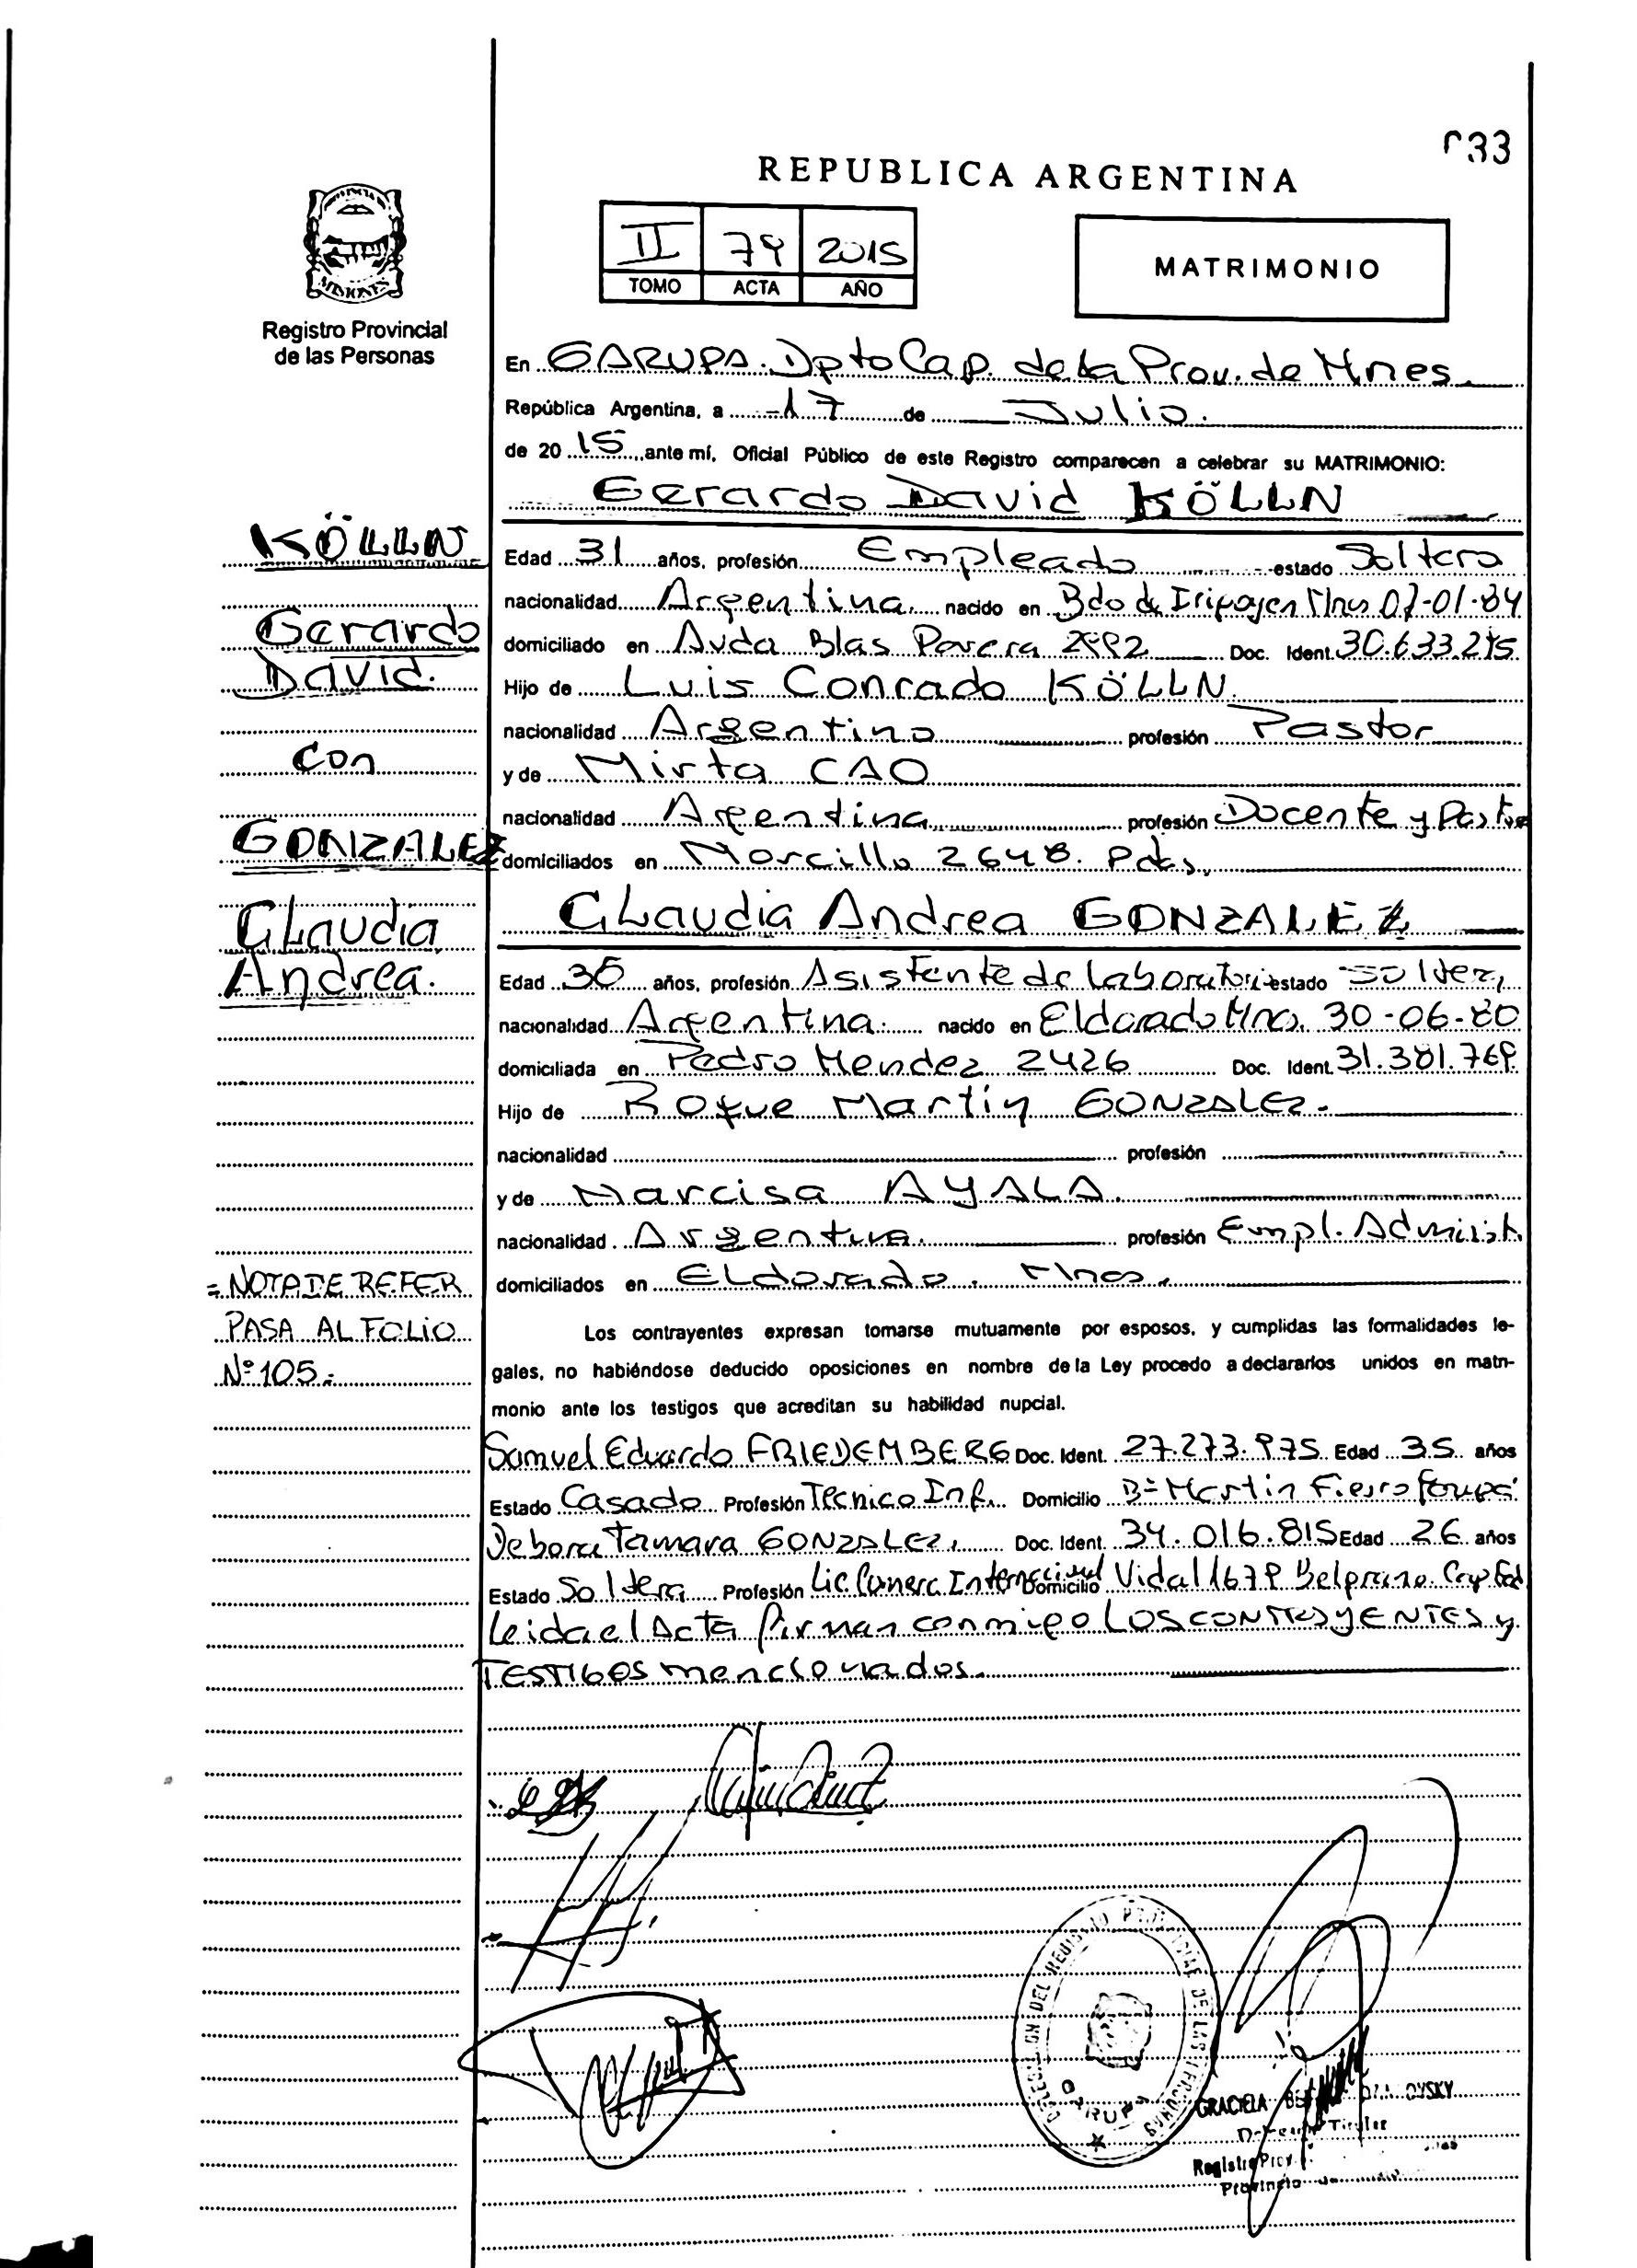 033
REPUBLICA ARGENTINA
MISIONES
II 79 2015
TOMO ACTA AÑO
MATRIMONIO
Registro Provincial
de las Personas
En GARUPA. Dpto Cap. de la Prov. de Mnes.
República Argentina, a 17 de Julio.
de 2015 ante mí, Oficial Público de este Registro comparecen a celebrar su MATRIMONIO:
Gerardo David KÖLLN
KÖLLN
Gerardo
David.
con
GONZALEZ
Claudia
Andrea.
Edad 31 años, profesión Empleado estado Soltero
nacionalidad Argentina nacido en Bdo de Irigoyen Mnes 07-01-84
domiciliado en Avda Blas Parera Doc. Ident. 30.633.215
Hijo de Luis Conrado KÖLLN.
nacionalidad Argentino profesión Pastor
y de Mirta CAO
nacionalidad Argentina profesión Docente y
domiciliados en Morcillo 2648. Pdas,
Claudia Andrea GONZALEZ
Edad 35 años, profesión Asistente de Laboratori estado soltera,
nacionalidad Argentina. nacido en Eldorado Mnes. 30-06-80
domiciliada en Pedro Mendez 2426 Doc. Ident. 31.381.769.
Hijo de Roque Martin GONZALEZ.
nacionalidad profesión
y de Narcisa AYALA.
nacionalidad Argentina. profesión Empl. Administ.
domiciliados en ELdorado. Mnes.
= NOTA DE REFER
PASA AL FOLIO
Nº 105.-
Los contrayentes expresan tomarse mutuamente por esposos, y cumplidas las formalidades le-
gales, no habiéndose deducido oposiciones en nombre de la Ley procedo a declararlos unidos en matri-
monio ante los testigos que acreditan su habilidad nupcial.
Samuel Eduardo FRIEDEMBERG Doc. Ident. 27.273.975 Edad 35 años
Estado Casado Profesión Tecnico Inf. Domicilio Bº Martin Fierro Garupá
Debora Tamara GONZALEZ, Doc. Ident. 34.016.815 Edad 26 años
Estado Soltera Profesión Lic. Comerc. Internacional Domicilio Vidal 1679 Belgrano. Cap Fed
Leida el Acta firman conmigo LOS CONTRAYENTES y
TESTIGOS mencionados.
DELEGACION DEL REGISTRO PROVINCIAL DE LAS PERSONAS
GARUPA
GRACIELA
Titular
Registro Prov.
Provincia